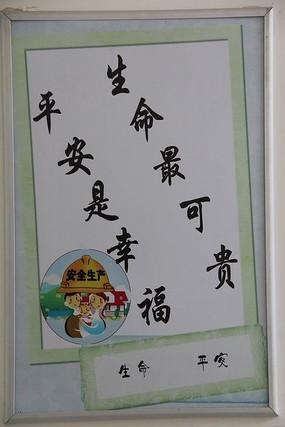 生命最可贵
平安是幸福
安全生产
生命 平安